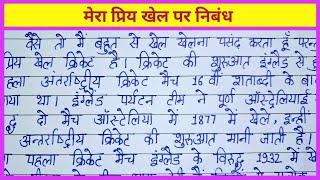 मेरा प्रिय खेल पर निबंध
वैसे तो मैं बहुत से खेल खेलना पसंद करता हूँ परन्
प्रिय खेल क्रिकेट है। क्रिकेट की शुरूआत इंग्लैंड से हु
हला अंतर्राष्ट्रीय क्रिकेट मैच 16 वी शताब्दी के बा
गया था। इंग्लैंड पर्यटन टीम ने पूर्ण ऑस्ट्रेलियाई
दो मैच ऑस्ट्रेलिया में 1877 में खेले, इन्ही
अन्तर्राष्ट्रीय क्रिकेट की शुरूआत मानी जाती है।
पहला क्रिकेट मैच इंग्लैंड के विरुद्ध 1932 में खे